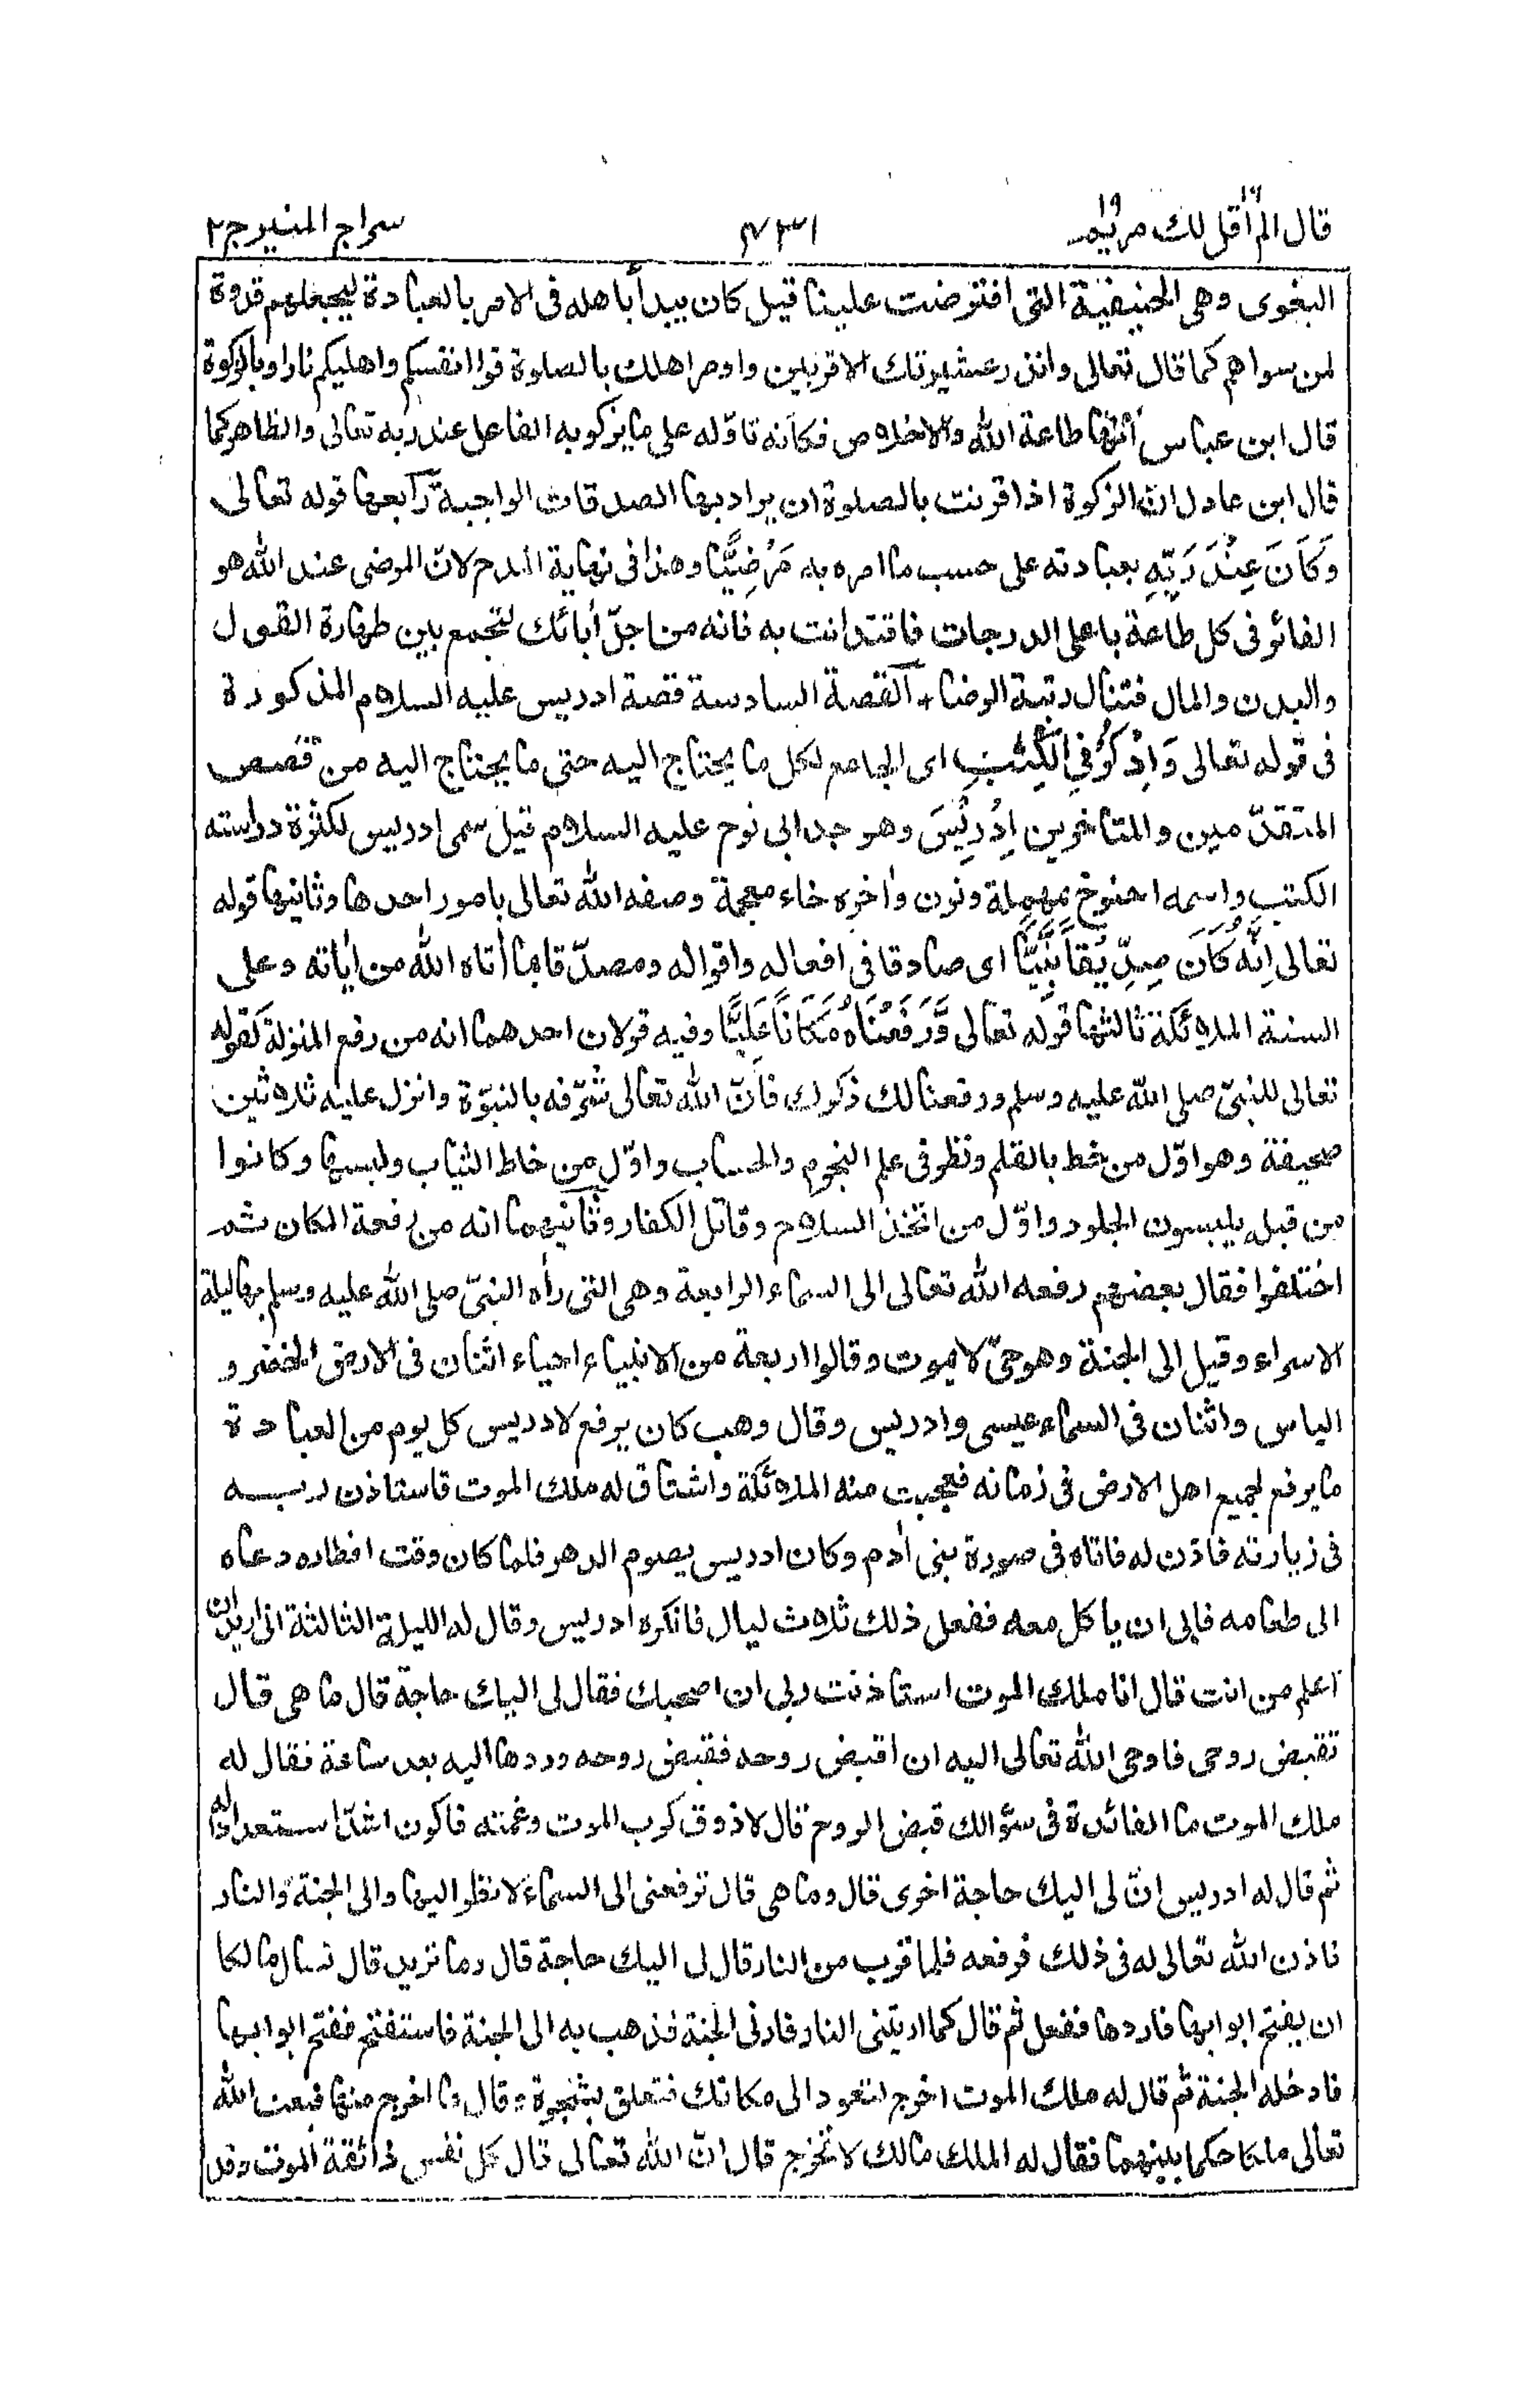 قال الم اقل لك ١٦ مريم ١٩
٤٣١
سراج المنير ج٢
البغوى وهى الحنيفية التى افترضت علينا قيل كان يبدأ باهله فى الامر بالعبادة ليجعلهم قدوة
لمن سواهم كما قال تعالى وانذر عشيرتك الاقربين وامر اهلك بالصلوة قوا انفسكم واهليكم نارا وبالزكوة
قال ابن عباس أنّها طاعة الله والاخلاص فكأنه تاوّله على ما يزكو به الفاعل عند ربه تعالى والظاهر كما
قال ابن عادل انّ الزكوة اذا قرنت بالصلوة ان يراد بها الصدقات الواجبة رابعها قوله تعالى
وَكَانَ عِنْدَ رَبِّهِ بعبادته على حسب ما امره به مَرْضِيًّا وهذا فى نهاية المدح لانّ المرضى عند الله هو
الفائز فى كل طاعة باعلى الدرجات فاقتد انت به فانه من اجلّ أبائك لتجمع بين طهارة القول
والبدن والمال فتنال رتبة الرضا + القصة السادسة قصة ادريس عليه السلام المذكورة
فى قوله تعالى وَاذْكُرْ فِي الْكِتٰبِ اى الجامع لكل ما يحتاج اليه حتى ما يحتاج اليه من قصص
المتقدّمين والمتاخرين اِدْرِيْسَ وهو جد ابى نوح عليه السلام قيل سمى ادريس لكثرة دراسته
الكتب واسمه احنوخ بمهملة ونون وأخره خاء معجمة وصفه الله تعالى بامور احدها وثانيها قوله
تعالى اِنَّهُ كَانَ صِدِّيْقًا نَّبِيًّا اى صادقا فى افعاله واقواله ومصدّقا بما أتاه الله من أياته وعلى
السنة الملائكة ثالثها قوله تعالى وَّرَفَعْنَاهُ مَكَانًا عَلِيًّا وفيه قولان احدهما انه من رفع المنزلة كقوله
تعالى للنبىّ صلى الله عليه وسلم ورفعنا لك ذكرك فانّ الله تعالى شرّفه بالنبوّة وانزل عليه ثلاثين
صحيفة وهو اوّل من خط بالقلم ونظر فى علم النجوم والحساب واوّل من خاط الثياب ولبسها وكانوا
من قبله يلبسون الجلود واوّل من اتخذ السلاح وقاتل الكفار وثانيهما انه من رفعة المكان ثم
اختلفوا فقال بعضهم رفعه الله تعالى الى السماء الرابعة وهى التى رأه النبىّ صلى الله عليه وسلم بها ليلة
الاسراء وقيل الى الجنة وهو حىّ لا يموت وقالوا اربعة من الانبياء احياء اثنان فى الارض الخضر و
الياس واثنان فى السماء عيسى وادريس وقال وهب كان يرفع لادريس كل يوم من العبادة
ما يرفع لجميع اهل الارض فى زمانه فعجبت منه الملائكة واشتاق له ملك الموت فاستاذن ربه
فى زيارته فاذن له فاتاه فى صورة بنى أدم وكان ادريس يصوم الدهر فلما كان وقت افطاره دعاه
الى طعامه فابى ان ياكل معه ففعل ذلك ثلاث ليال فانكره ادريس وقال له الليلة الثالثة انى اريد ان
اعلم من انت قال انا ملك الموت استاذنت ربى ان اصحبك فقال لى اليك حاجة قال ما هى قال
تقبض روحى فاوحى الله تعالى اليه ان اقبض روحه فقبض روحه وردها اليه بعد ساعة فقال له
ملك الموت ما الفائدة فى سؤالك قبض الروح قال لاذوق كرب الموت وغمته فاكون اشدّ استعدادا له
ثم قال له ادريس انّ لى اليك حاجة اخرى قال وما هى قال ترفعنى الى السماء لانظر اليها والى الجنة والنار
فاذن الله تعالى له فى ذلك فرفعه فلما قرب من النار قال لى اليك حاجة قال وما تريد قال تسال مالكا
ان يفتح ابوابها فاردها ففعل ثم قال كما اريتنى النار فارنى الجنة فذهب به الى الجنة فاستفتح ففتح ابوابها
فادخله الجنة ثم قال له ملك الموت اخرج لتعود الى مكانك فتعلق بشجرة وقال ما اخرج منها فبعث الله
تعالى ملكا حكما بينهما فقال له الملك مالك لا تخرج قال انّ الله تعالى قال كل نفس ذائقة الموت وقد